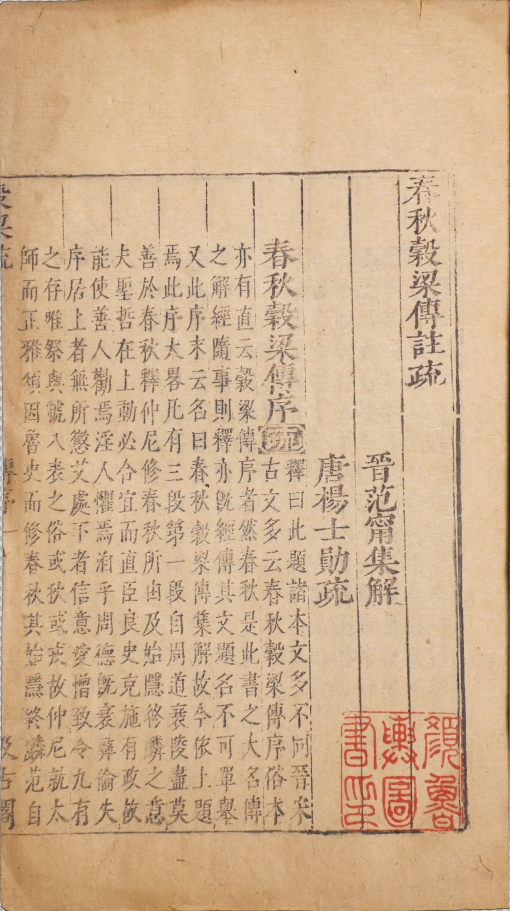 春秋穀梁傳註疏
晉范甯集解
唐楊士勛疏
春秋穀梁傳序 疏
釋曰此題諸本文多不同晉宋
古文多云春秋穀梁傳序俗本
亦有直云穀梁傳序者然春秋是此書之大名傳
之解經隨事則釋亦旣經傳其文題名不可單舉
又此序末云名曰春秋穀梁傳集解故今依上題
焉此序大畧凡有三段第一段自周道衰陵盡莫
善於春秋釋仲尼修春秋所由及始隱終麟之意
夫聖哲在上動必合宜而直臣良史克施有政故
能使善人勸焉淫人懼焉洎乎周德旣衰彝倫失
序居上者無所懲艾處下者信意愛憎致令九有
之存唯祭與號八表之俗或狄或戎故仲尼就太
師而正雅頌因魯史而修春秋其始隱終麟范自